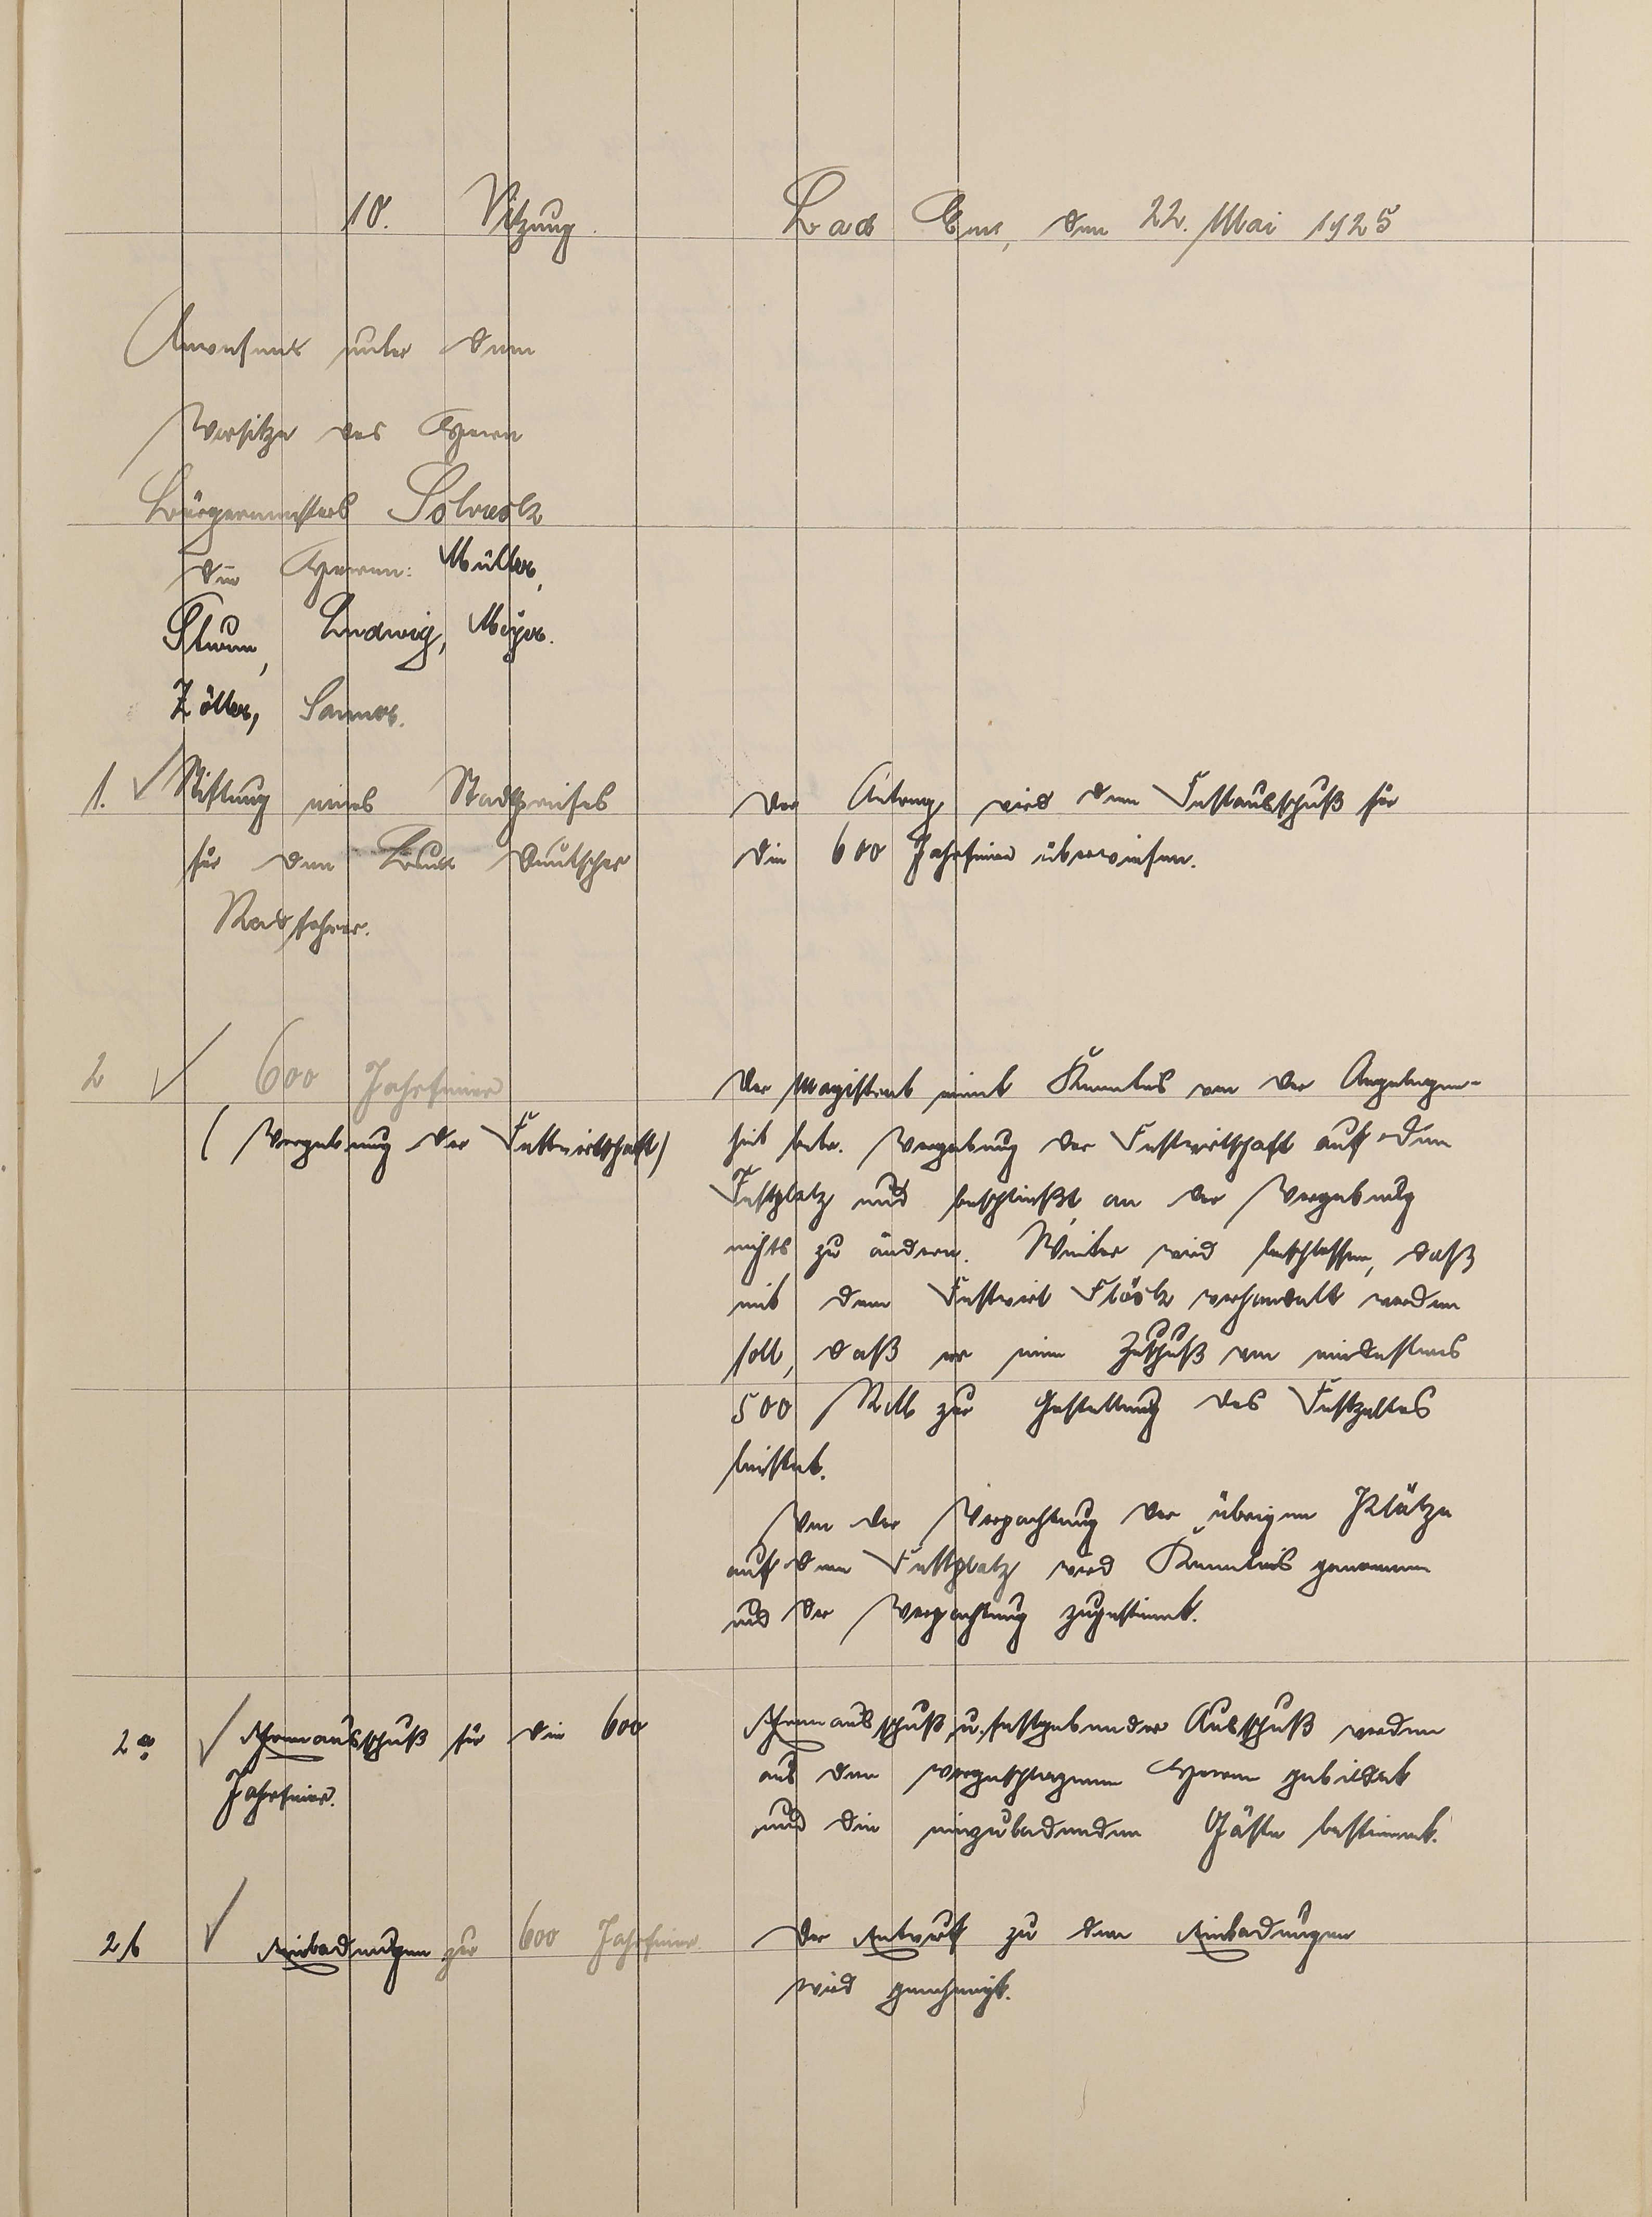 10. Sitzung
Bad Ems, den 22. Mai 1925
Anwesend unter dem
Vorsitze des Herrn
Bürgermeisters
die Herren: Müller,
Sturm, Ludwig, Meyer.
Zöller, Sommer.
1. Stiftung eines Stadtpreises
für den Bund deutscher
Radfahrer.
Der Antrag wird dem Festausschuß für
die 600 Jahrfeier überwiesen.
2 600 Jahrfeier
(Vergebung der Festwirtschaft)
Der Magistrat nimt Kenntnis von der Angelegen-
heit betr. Vergebung der Festwirtschaft auf dem
Festplatz und beschließt, an der Vergebung
nichts zu ändern. Weiter wird beschlossen, daß
mit dem Festwirt Flöck verhandelt werden
soll, daß er einen Zuschuß von mindestens
500 RM zur Gestellung des Festzeltes
leistet.
Von der Verpachtung der übrigen Plätze
auf dem Festplatz wird Kenntnis genommen
und der Verpachtung zugestimmt.
2a Ehrenausschuß für die 600
Jahrfeier.
Ehrenausschuß u. festgebender Ausschuß werden
aus den vorgeschlagenen Herren gebildet
und die einzuladenden Gäste bestimmt.
2b Einladungen zur 600 Jahrfeier.
Der Entwurf zu den Einladungen
wird genehmigt.